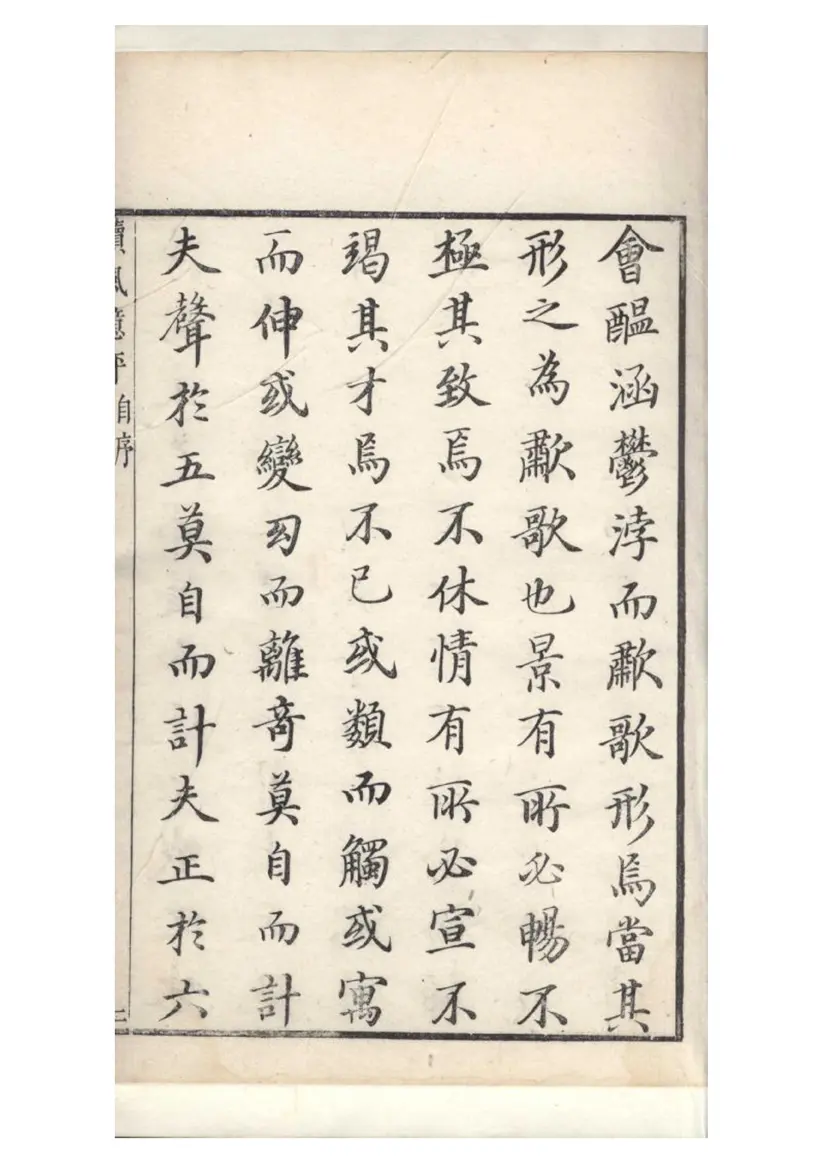 會醖涵鬱浡而歗歌形焉當其
形之為歗歌也景有所必暢不
極其致焉不休情有所必宣不
竭其才焉不已或類而觸或寓
而伸或變幻而離奇莫自而計
夫聲於五莫自而計夫正於六
讀風臆評自序